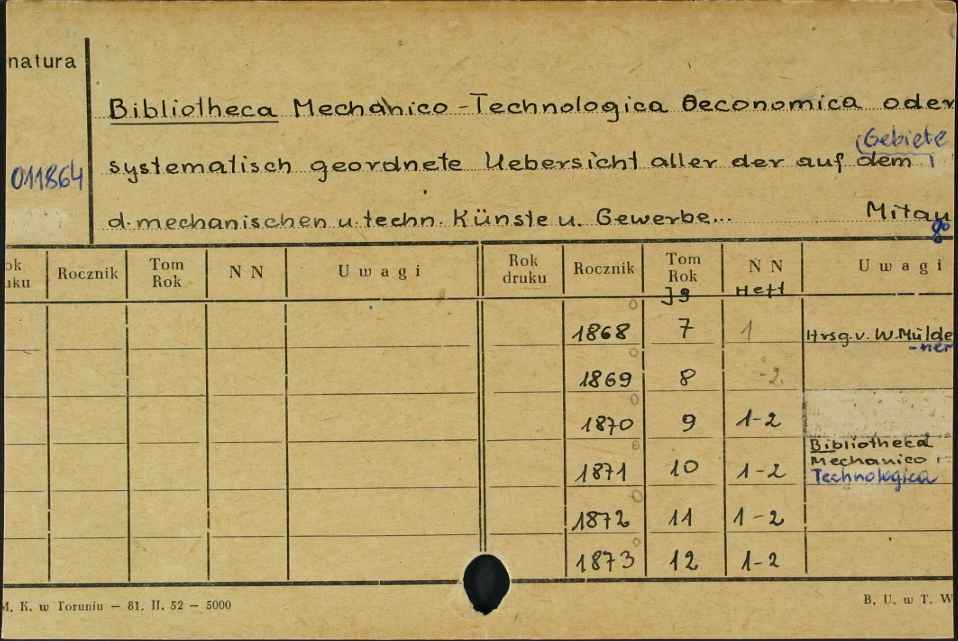 natura
Bibliotheca Mechanico-Technologica Oeconomica oder
Gebiete
011864 systematisch geordnete Uebersicht aller der auf dem
d. mechanischen u. techn. Künste u. Gewerbe... Mitau
8°
ok Rocznik Tom N N Uwagi Rok Rocznik Tom N N Uwagi
uku Rok druku Rok
Jg Heft
1868 7 1 Hrsg. v. W. Mülde
-ner
1869 8 -2.
1870 9 1-2
Bibliotheca
Mechanico
1871 10 1-2 Technologica
1872 11 1-2
1873 12 1-2
M. K. w Toruniu — 81. II. 52 — 5000 B. U. w T. W